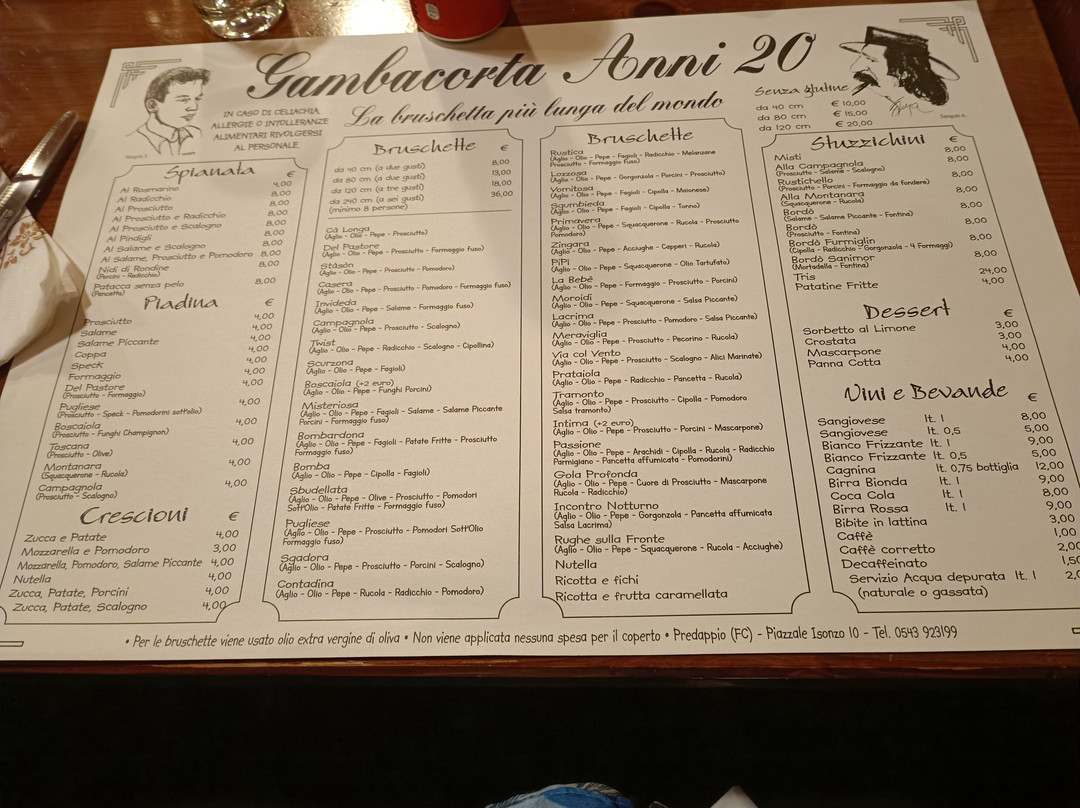 Gambacorta Anni 20
La bruschetta più lunga del mondo
IN CASO DI CELIACHIA
ALLERGIE O INTOLLERANZE
ALIMENTARI RIVOLGERSI
AL PERSONALE
Senza glutine
da 40 cm € 10,00
da 80 cm € 15,00
da 120 cm € 20,00
Spianata €
Al Rosmarino 4,00
Al Radicchio 8,00
Al Prosciutto 8,00
Al Prosciutto e Radicchio 8,00
Al Prosciutto e Scalogno 8,00
Ai Pindigli 8,00
Al Salame e Scalogno 8,00
Al Salame, Prosciutto e Pomodoro 8,00
Nidi di Rondine 8,00
(Porcini - Radicchio)
Patacca senza pelo 8,00
(Pancetta)
Piadina €
Prosciutto 4,00
Salame 4,00
Salame Piccante 4,00
Coppa 4,00
Speck 4,00
Formaggio 4,00
Del Pastore 4,00
(Prosciutto - Formaggio)
Pugliese 4,00
(Prosciutto - Speck - Pomodorini sott'olio)
Boscaiola 4,00
(Prosciutto - Funghi Champignon)
Toscana 4,00
(Prosciutto - Olive)
Montanara 4,00
(Squacquerone - Rucola)
Campagnola 4,00
(Prosciutto - Scalogno)
Crescioni €
Zucca e Patate 4,00
Mozzarella e Pomodoro 3,00
Mozzarella, Pomodoro, Salame Piccante 4,00
Nutella 4,00
Zucca, Patate, Porcini 4,00
Zucca, Patate, Scalogno 4,00
Bruschette €
da 40 cm (a due gusti) 8,00
da 80 cm (a due gusti) 13,00
da 120 cm (a tre gusti) 18,00
da 240 cm (a sei gusti) 36,00
(minimo 8 persone)
Cà Longa
(Aglio - Olio - Pepe - Prosciutto)
Del Pastore
(Aglio - Olio - Pepe - Prosciutto - Formaggio fuso)
Stàsòn
(Aglio - Olio - Pepe - Prosciutto - Pomodoro)
Casera
(Aglio - Olio - Pepe - Prosciutto - Pomodoro - Formaggio fuso)
Invideda
(Aglio - Olio - Pepe - Salame - Formaggio fuso)
Campagnola
(Aglio - Olio - Pepe - Prosciutto - Scalogno)
Twist
(Aglio - Olio - Pepe - Radicchio - Scalogno - Cipollina)
Scurzona
(Aglio - Olio - Pepe - Fagioli)
Boscaiola (+2 euro)
(Aglio - Olio - Pepe - Funghi Porcini)
Misteriosa
(Aglio - Olio - Pepe - Fagioli - Salame - Salame Piccante
Porcini - Formaggio fuso)
Bombardona
(Aglio - Olio - Pepe - Fagioli - Patate Fritte - Prosciutto
Formaggio fuso)
Bomba
(Aglio - Olio - Pepe - Cipolla - Fagioli)
Sbudellata
(Aglio - Olio - Pepe - Olive - Prosciutto - Pomodori
Sott'Olio - Patate Fritte - Formaggio fuso)
Pugliese
(Aglio - Olio - Pepe - Prosciutto - Pomodori Sott'Olio
Formaggio fuso)
Sgadora
(Aglio - Olio - Pepe - Prosciutto - Porcini - Scalogno)
Contadina
(Aglio - Olio - Pepe - Rucola - Radicchio - Pomodoro)
Bruschette
Rustica
(Aglio - Olio - Pepe - Fagioli - Radicchio - Melanzane
Prosciutto - Formaggio fuso)
Lozzosa
(Aglio - Olio - Pepe - Gorgonzola - Porcini - Prosciutto)
Vomitosa
(Aglio - Olio - Pepe - Fagioli - Cipolla - Maionese)
Sgumbieda
(Aglio - Olio - Pepe - Fagioli - Cipolla - Tonno)
Primavera
(Aglio - Olio - Pepe - Squacquerone - Rucola - Prosciutto
Pomodoro)
Zingara
(Aglio - Olio - Pepe - Acciughe - Capperi - Rucola)
PiPi
(Aglio - Olio - Pepe - Squacquerone - Olio Tartufato)
La Bebè
(Aglio - Olio - Pepe - Formaggio - Prosciutto - Porcini)
Moroidi
(Aglio - Olio - Pepe - Squacquerone - Salsa Piccante)
Lacrima
(Aglio - Olio - Pepe - Prosciutto - Pomodoro - Salsa Piccante)
Meraviglia
(Aglio - Olio - Pepe - Prosciutto - Pecorino - Rucola)
Via col Vento
(Aglio - Olio - Pepe - Prosciutto - Scalogno - Alici Marinate)
Prataiola
(Aglio - Olio - Pepe - Radicchio - Pancetta - Rucola)
Tramonto
(Aglio - Olio - Pepe - Prosciutto - Cipolla - Pomodoro
Salsa tramonto)
Intima (+2 euro)
(Aglio - Olio - Pepe - Prosciutto - Porcini - Mascarpone)
Passione
(Aglio - Olio - Pepe - Arachidi - Cipolla - Rucola - Radicchio
Parmigiano - Pancetta affumicata - Pomodorini)
Gola Profonda
(Aglio - Olio - Pepe - Cuore di Prosciutto - Mascarpone
Rucola - Radicchio)
Incontro Notturno
(Aglio - Olio - Pepe - Gorgonzola - Pancetta affumicata
Salsa Lacrima)
Rughe sulla Fronte
(Aglio - Olio - Pepe - Squacquerone - Rucola - Acciughe)
Nutella
Ricotta e fichi
Ricotta e frutta caramellata
Stuzzichini €
Misti 8,00
Alla Campagnola 8,00
(Prosciutto - Salame - Scalogno)
Rustichello 8,00
(Prosciutto - Porcini - Formaggio da fondere)
Alla Montanara 8,00
(Squacquerone - Rucola)
Bordò 8,00
(Salame - Salame Piccante - Fontina)
Bordò 8,00
(Prosciutto - Fontina)
Bordò Furmiglin 8,00
(Cipolla - Radicchio - Gorgonzola - 4 Formaggi)
Bordò Sanimor 8,00
(Mortadella - Fontina)
Tris 24,00
Patatine Fritte 4,00
Dessert €
Sorbetto al Limone 3,00
Crostata 3,00
Mascarpone 4,00
Panna Cotta 4,00
Vini e Bevande €
Sangiovese lt. 1 8,00
Sangiovese lt. 0,5 5,00
Bianco Frizzante lt. 1 9,00
Bianco Frizzante lt. 0,5 5,00
Cagnina lt. 0,75 bottiglia 12,00
Birra Bionda lt. 1 9,00
Coca Cola lt. 1 8,00
Birra Rossa lt. 1 9,00
Bibite in lattina 3,00
Caffè 1,00
Caffè corretto 2,00
Decaffeinato 1,50
Servizio Acqua depurata lt. 1
(naturale o gassata)
• Per le bruschette viene usato olio extra vergine di oliva • Non viene applicata nessuna spesa per il coperto • Predappio (FC) - Piazzale Isonzo 10 - Tel. 0543 923199